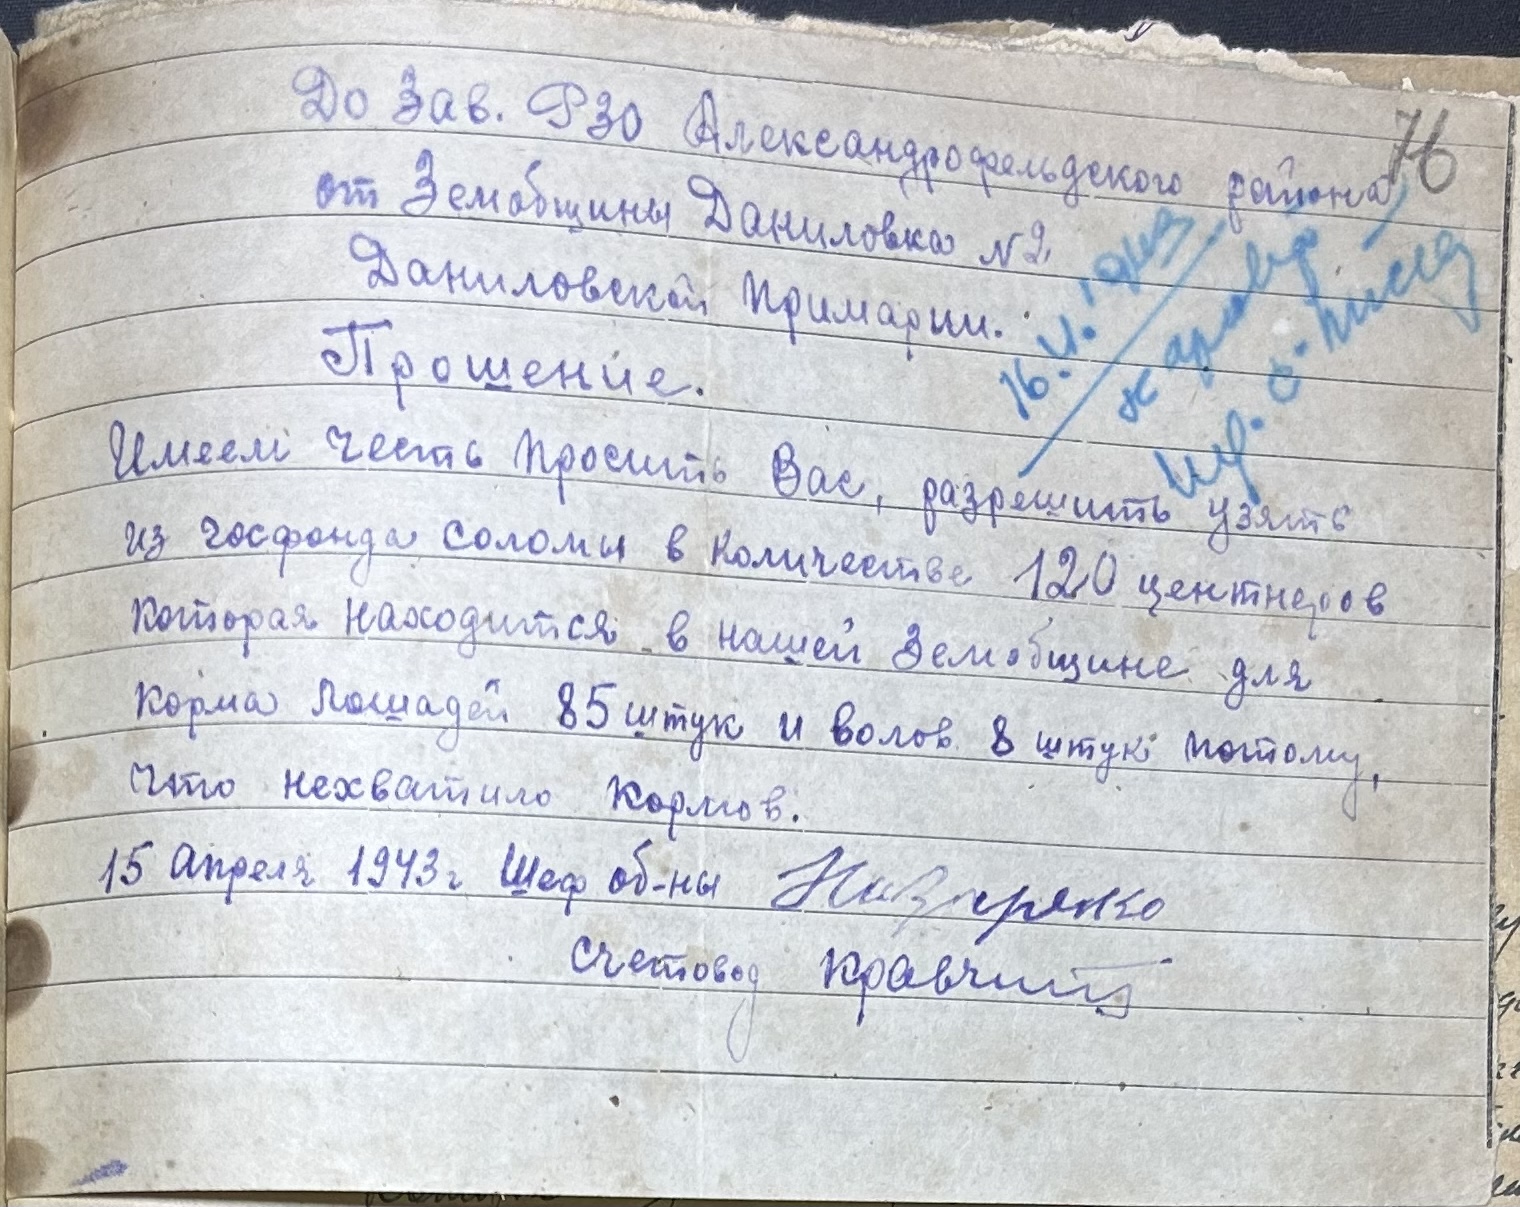 76
До Зав. РЗО Александрофельдского района
от Земобщины Даниловка №2
Даниловской примарии.
Прошение.
Имеем честь просить Вас, разрешить узять
из госфонда соломы в количестве 120 центнеров
которая находится в нашей Земобщине для
корма лошадей 85 штук и волов 8 штук потому,
что нехватило кормов.
15 Апреля 1943г Шеф об-ны Назаренко
Счетовод Кравчит
16.
к